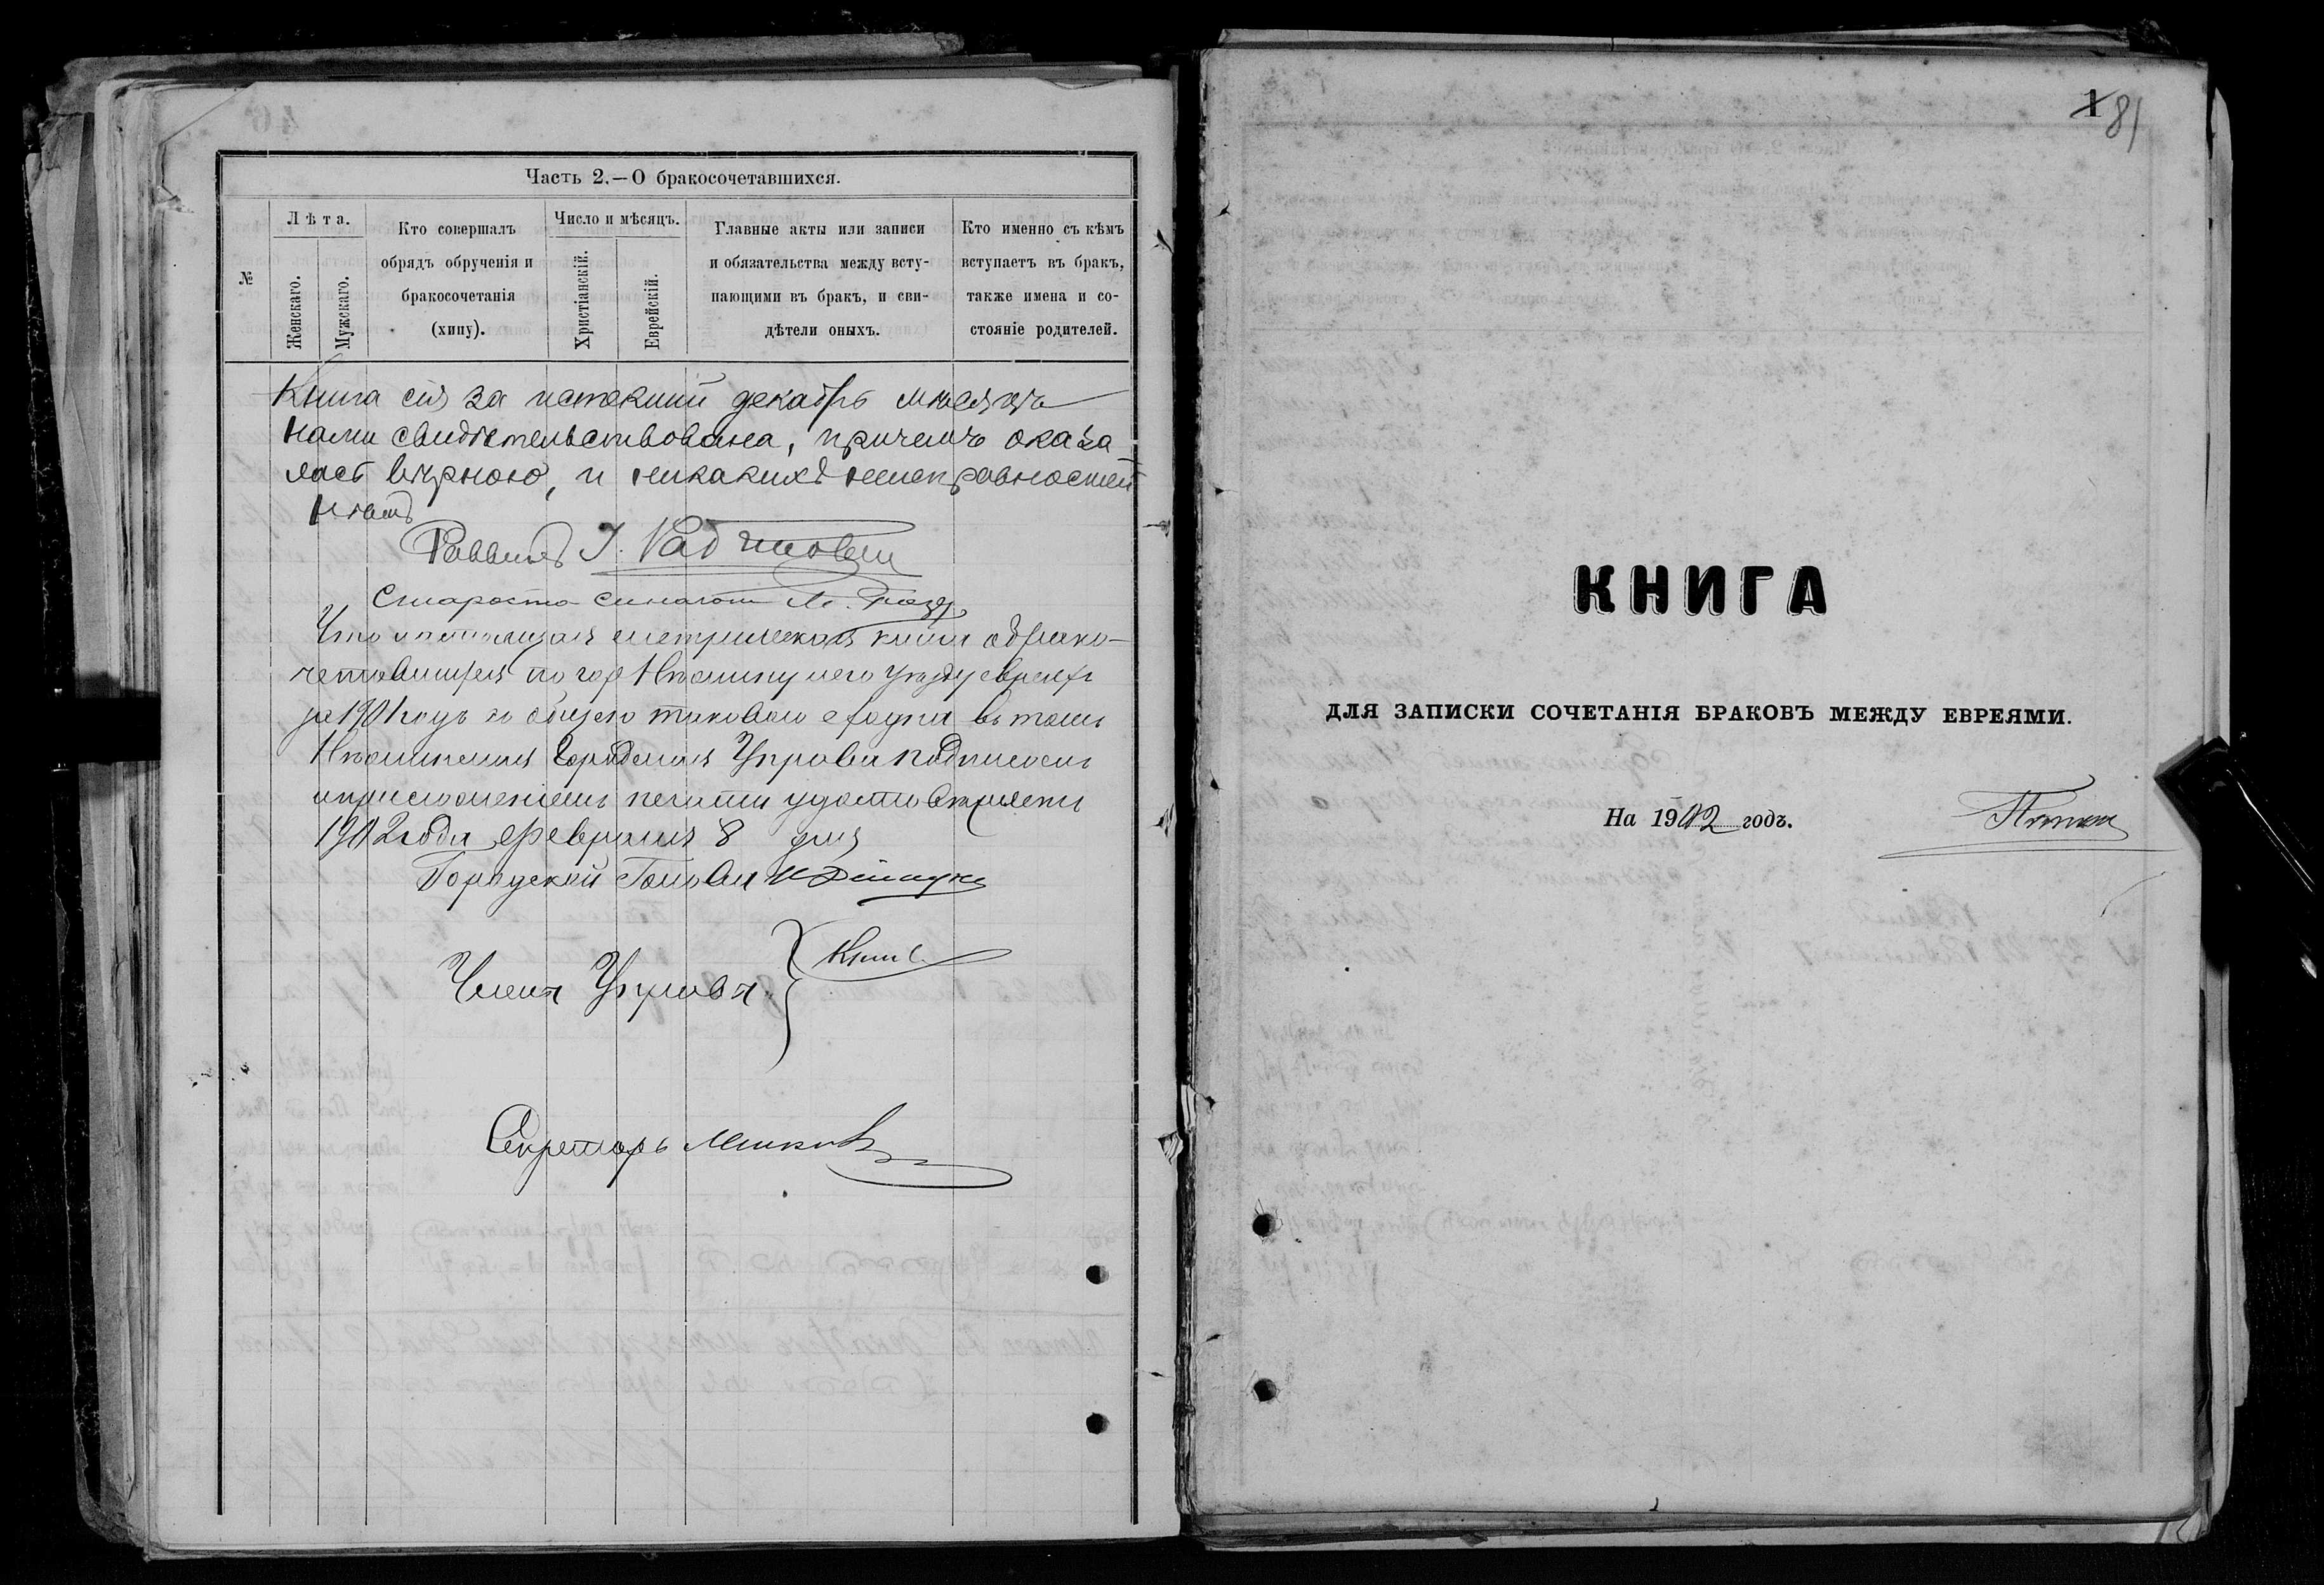 Часть 2.—О бракосочетавшихся.
№
Лѣта.
Женскаго.
Мужскаго.
Кто совершалъ
обрядъ обрученія и
бракосочетанія
(хипу).
Число и мѣсяцъ.
Христіанскій.
Еврейскій.
Главные акты или записи
и обязательства между всту-
пающими въ бракъ, и сви-
дѣтели оныхъ.
Кто именно съ кѣмъ
вступаетъ въ бракъ,
также имена и со-
стояніе родителей.
Книга сія за истекшій декабрь мѣсяцъ
нами свидѣтельствована, причемъ оказа
лась вѣрною, и никакихъ неисправностей
нѣтъ
Раввинъ І.
Староста синагоги М.
Что настоящая метрическая книга о брако-
четавшихся по гор уѣзду евреяхъ
за 1901 годъ въ томъ
Городская Управа подписомъ
приложеніемъ печати удостовѣряетъ
1902 года февраля 8 дня
Городской Голова
Члены Управы
Секретарь
1 81
КНИГА
ДЛЯ ЗАПИСКИ СОЧЕТАНІЯ БРАКОВЪ МЕЖДУ ЕВРЕЯМИ.
На 1902 годъ.